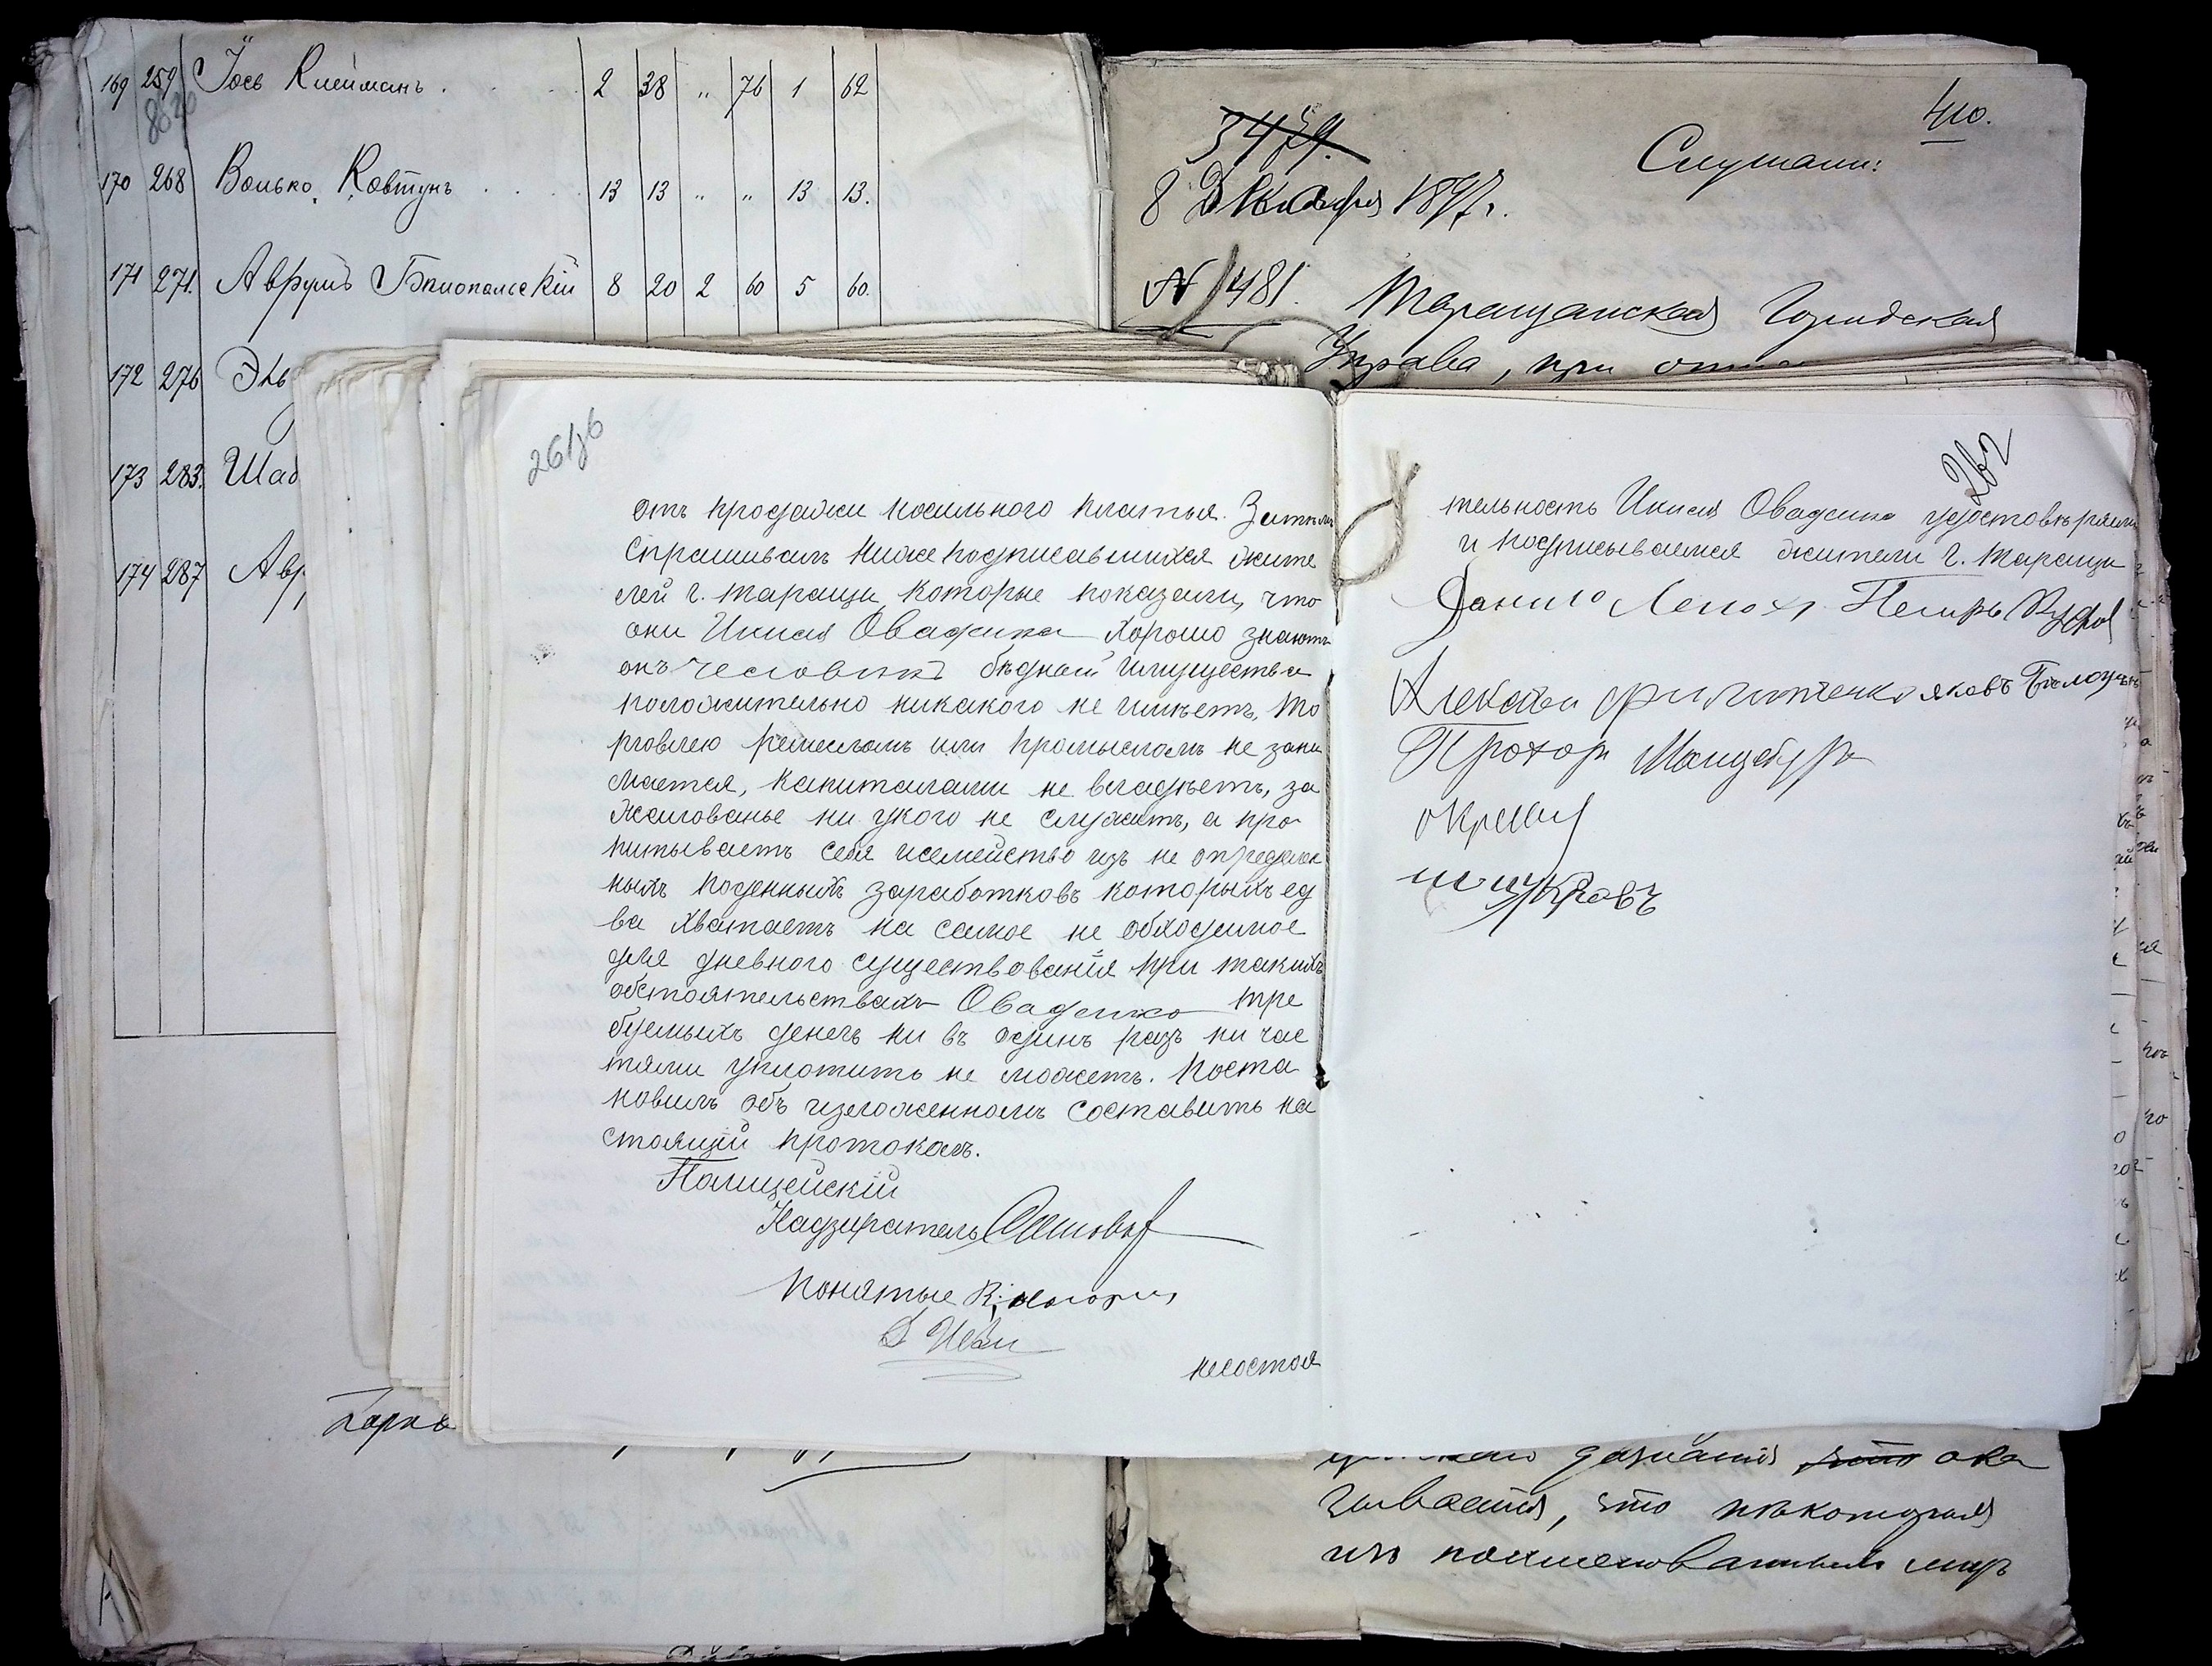 169 259 Іось Клейманъ 2 38 " 76 1 62
170 268 Волько Ковтунъ 13 13 " " 13 13.
171 271. Аврумъ Бѣлопольскій 8 20 2 60 5 60.
172 276
173 283.
174 287
410.
Слушали:
8 Декабря 1897 г.
N 1481. Таращанская Городская
Управа, при
261об
отъ продажи носильнаго платья. Затѣмъ
спрашивалъ нижеподписавшихся жите
лей г. Таращи, которые показали, что
они Икиля Оваденка хорошо знаютъ
онъ человѣкъ бѣдный имущества
положительно никакого не имѣетъ, то
рговлею ремесломъ или промысломъ не зани
мается, капиталами не владѣетъ, за
жалованье ни укого не служитъ, а про
питываетъ себя исемейство изъ не определен
ныхъ поденныхъ заработковъ которыхъ ед
ва хватаетъ на самое не обходимое
для дневного существованія при такихъ
обстоятельствахъ Оваденко тре
буемыхъ денегъ ни въ одинъ разъ ни час
тями уплотить не можетъ. Поста
новилъ объ изложенномъ составить на
стоящій протоколъ.
Полицейскій
Надзиратель
Понятые
несостоя
262
тельность Икиля Оваденка удостовѣряемъ
и подписываемся жители г. Таращи
Данило Петръ
Яковъ
Прохоръ
дознанія ока
зывается, что нѣкоторыя
изъ поименованныхъ лицъ